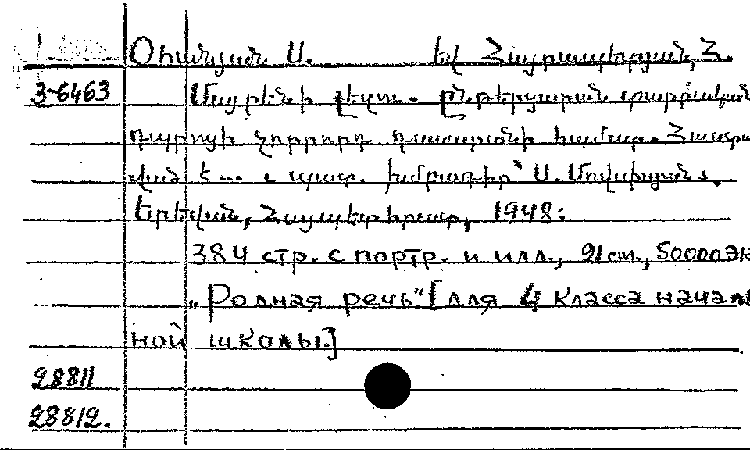 Օհանյան Ս. եվ Հայրապետյան, Հ.
3-6463 Մայրենի լեզու. ընթերցարան տարրական
դպրոցի չորրորդ դասարանի համար. Հաստատ
ված է ... պատ. խմբագիր՝ Ս. Մովսիսյան.
Երեվան, Հայպետհրատ, 1948:
384 стр. с портр. и илл., 21 см., 50000 эк
„Родная речь" [для 4 класса началь
ной школы.]
28811
28812.